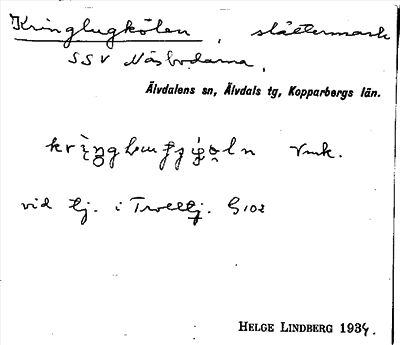 Kringlugkölen, slåttermark
SSV Näsbodarna.
Älvdalens sn, Älvdals tg, Kopparbergs län.
vid tj. i Trolltj. G102
HELGE LINDBERG 1934.